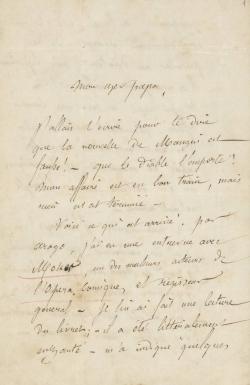 Mon cher papa,
J'allais t'écrire pour te dire
que la nouvelle de est
fausse! — que le diable l'emporte!
Mon affaire est en bon train, mais
rien n'est terminé —
Voici ce qui est arrivé. par
j'ai eu une entrevue avec
un des meilleurs acteurs de
l'Opéra Comique, et régisseur
général — Je lui ai fait une lecture
du livret; — il a été littéralement
— m'a indiqué quelques